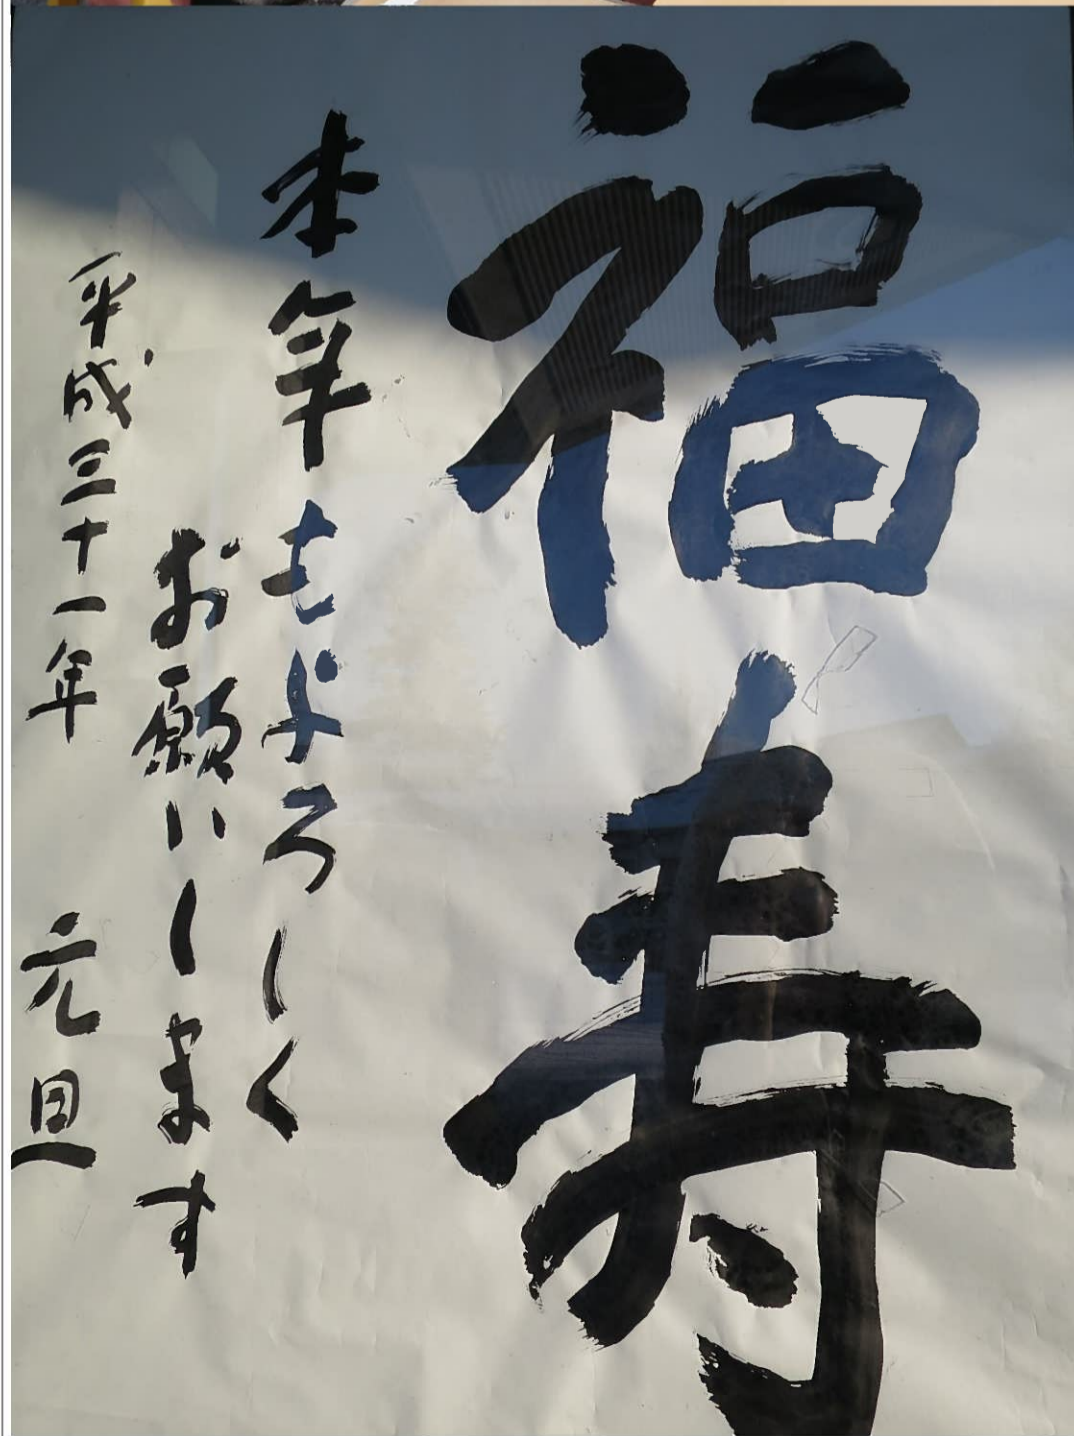 福寿
本年もよろしく
お願いします
平成三十一年 元旦